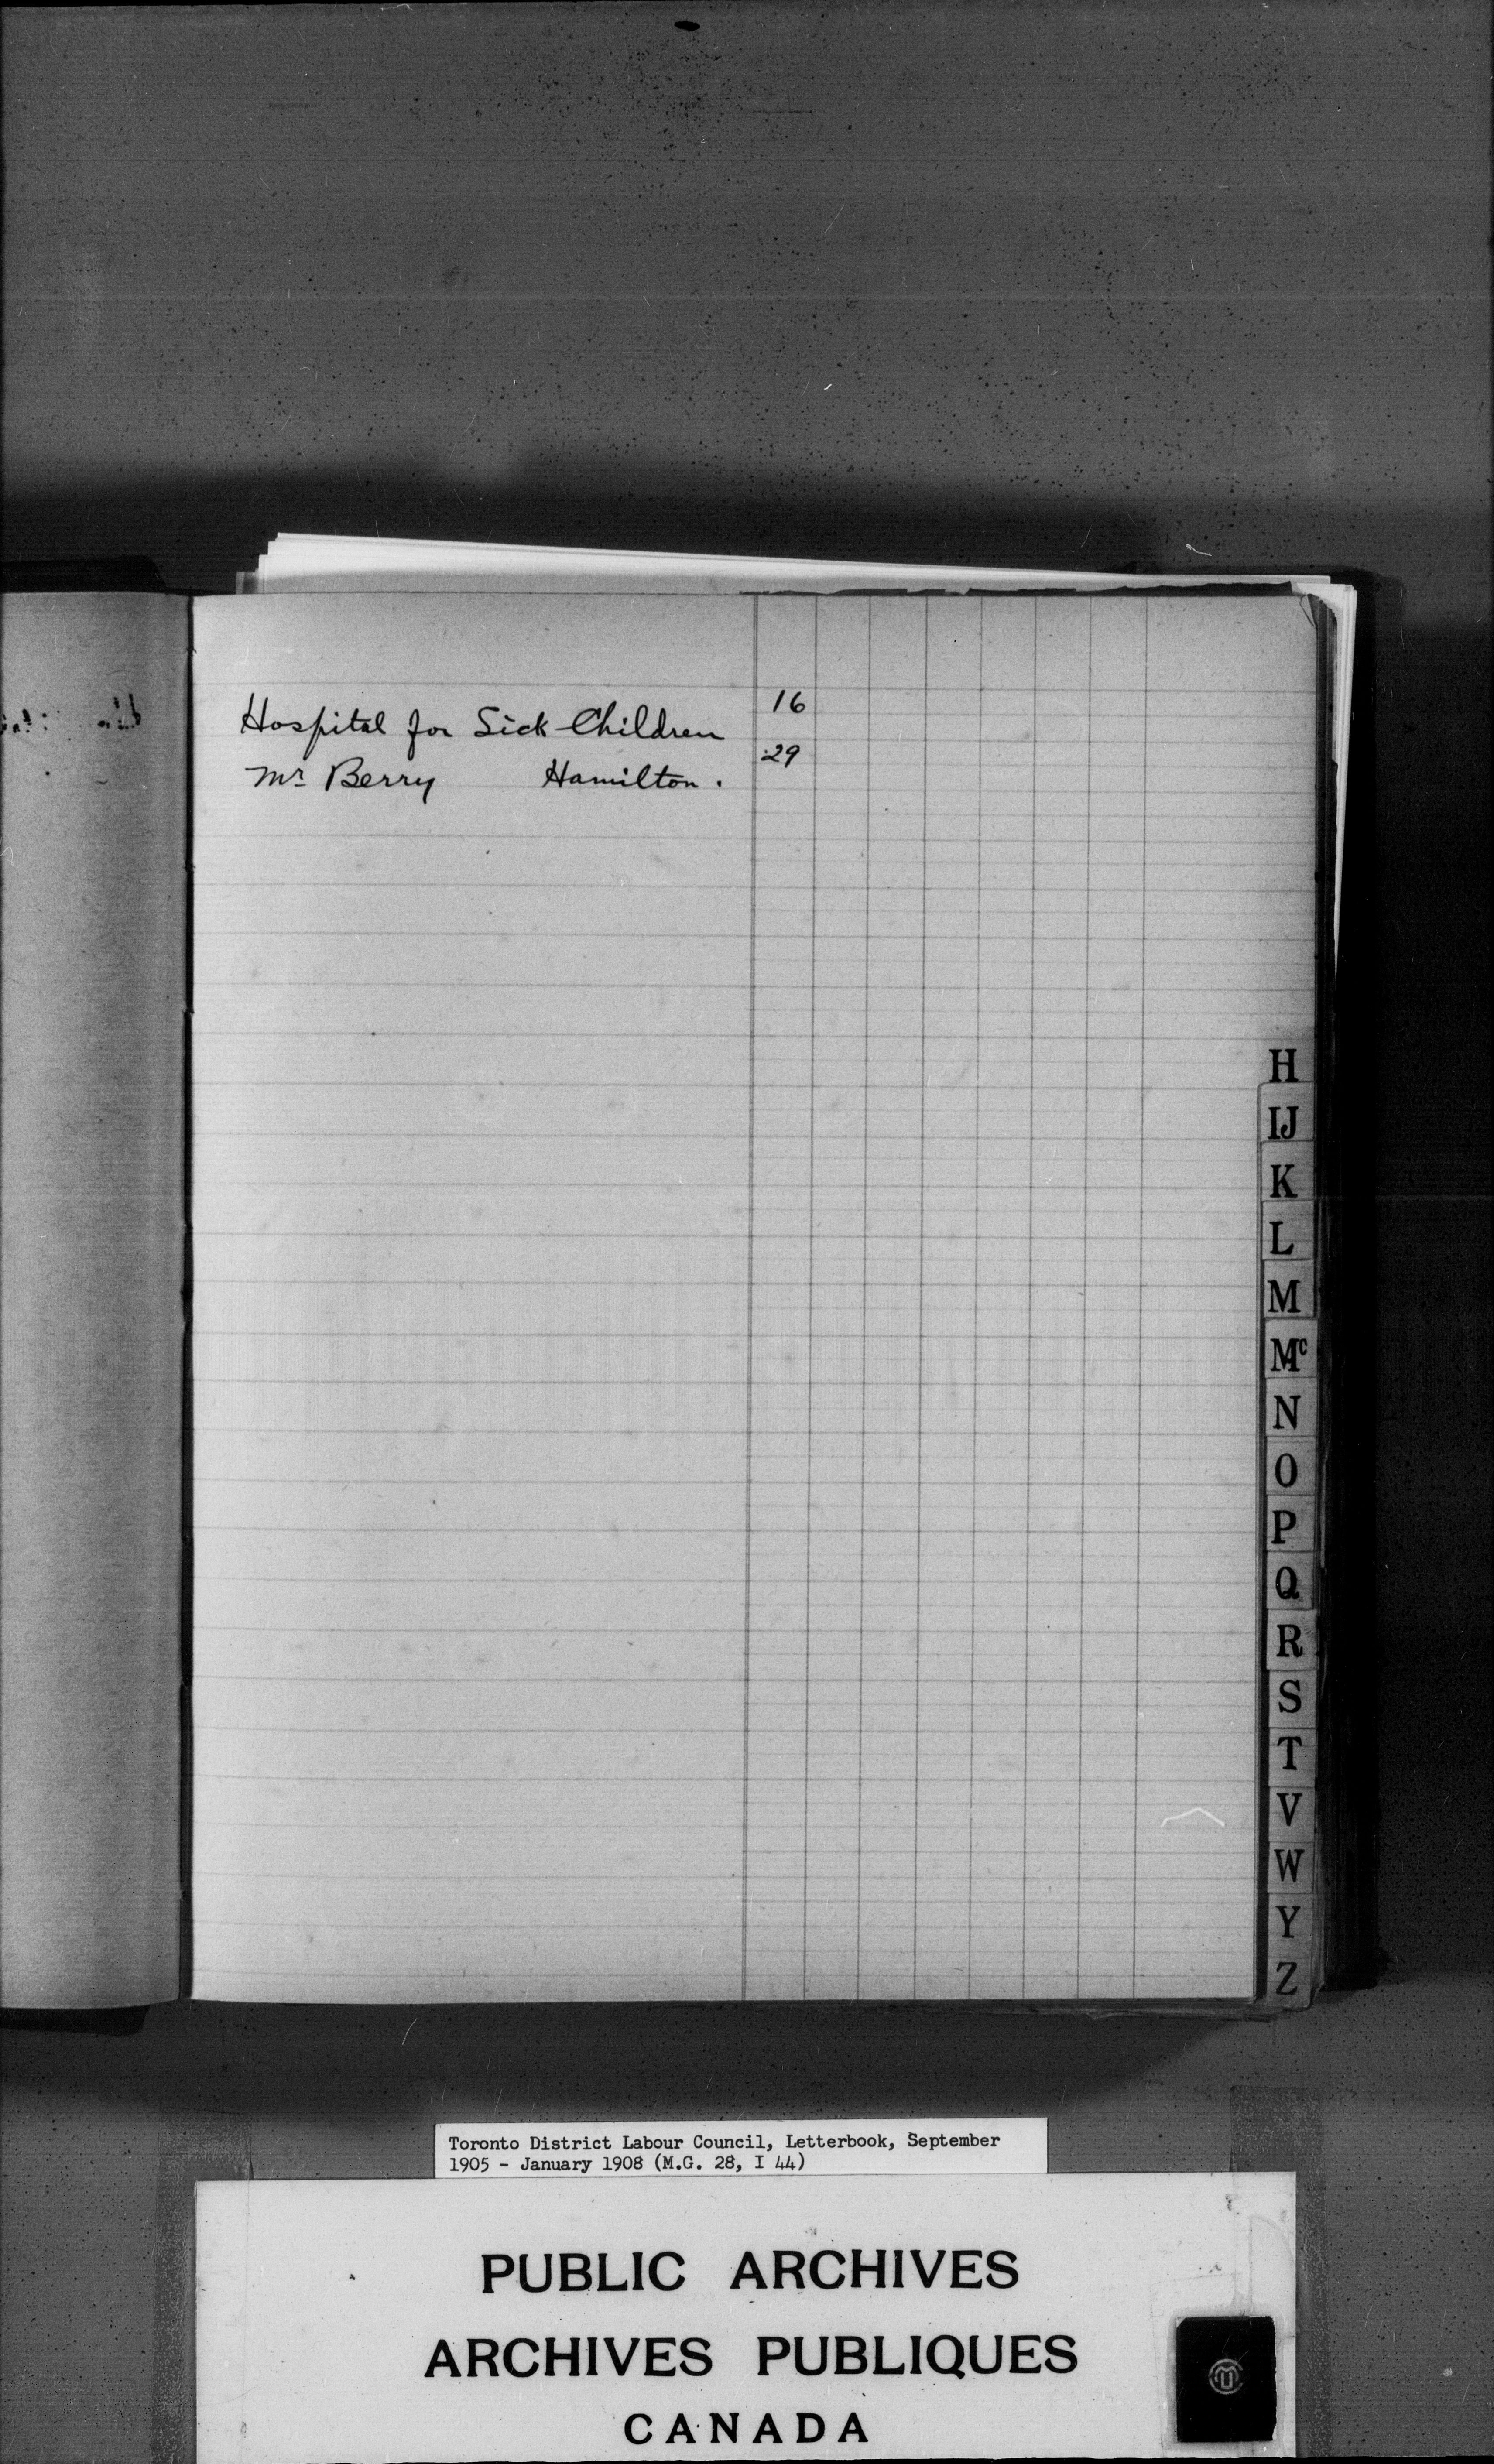 Hospital for Sick Children 16
Mr Berry Hamilton. 29
H
IJ
K
L
M
Mc
N
O
P
Q
R
S
T
V
W
Y
Z
Toronto District Labour Council, Letterbook, September
1905 - January 1908 (M.G. 28, I 44)
PUBLIC ARCHIVES
ARCHIVES PUBLIQUES
CANADA